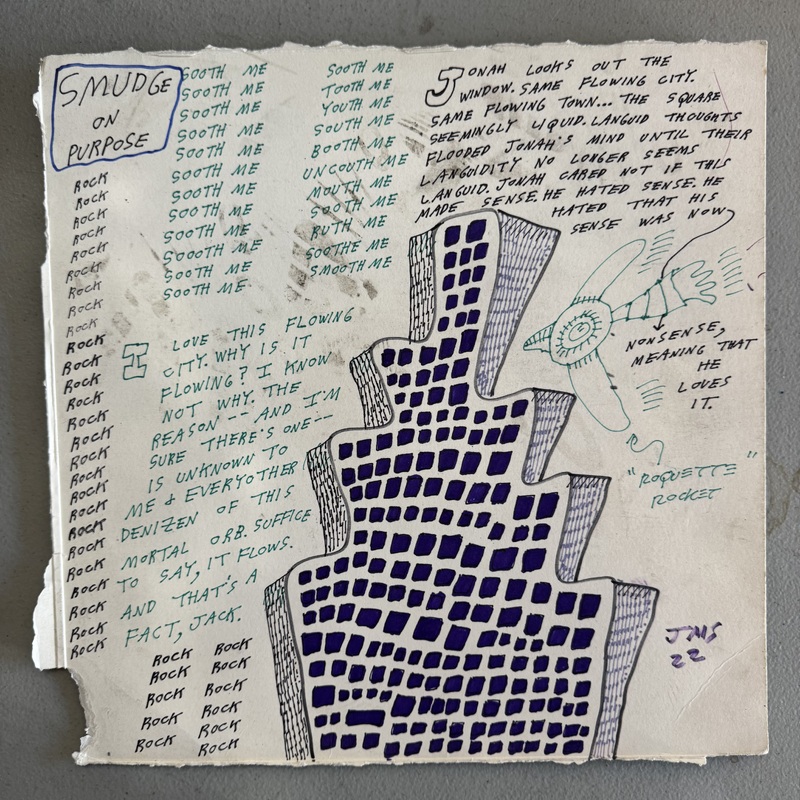 SMUDGE
ON
PURPOSE
ROCK
ROCK
ROCK
ROCK
ROCK
ROCK
ROCK
ROCK
ROCK
ROCK
ROCK
ROCK
ROCK
ROCK
ROCK
ROCK
ROCK
ROCK
ROCK
ROCK
ROCK
ROCK
ROCK
ROCK
ROCK
ROCK
ROCK
ROCK
ROCK
ROCK
ROCK
ROCK
ROCK
ROCK
ROCK
ROCK
ROCK
SOOTH ME
SOOTH ME
SOOTH ME
SOOTH ME
SOOTH ME
SOOTH ME
SOOTH ME
SOOTH ME
SOOTH ME
SOOOTH ME
SOOTH ME
SOOTH ME
SOOTH ME
TOOTH ME
YOUTH ME
SOUTH ME
BOOTH ME
UNCOUTH ME
MOUTH ME
SOOTH ME
RUTH ME
SOOTHE ME
SMOOTH ME
I LOVE THIS FLOWING
CITY. WHY IS IT
FLOWING? I KNOW
NOT WHY. THE
REASON -- AND I'M
SURE THERE'S ONE --
IS UNKNOWN TO
ME & EVERYOTHER
DENIZEN OF THIS
MORTAL ORB. SUFFICE
TO SAY, IT FLOWS.
AND THAT'S A
FACT, JACK.
JONAH LOOKS OUT THE
WINDOW. SAME FLOWING CITY.
SAME FLOWING TOWN... THE SQUARE
SEEMINGLY LIQUID. LANGUID THOUGHTS
FLOODED JONAH'S MIND UNTIL THEIR
LANGUIDITY NO LONGER SEEMS
LANGUID. JONAH CARED NOT IF THIS
MADE SENSE. HE HATED SENSE. HE
HATED THAT HIS
SENSE WAS NOW
NONSENSE,
MEANING THAT
HE
LOVES
IT.
"ROQUETTE"
ROCKET
JMS
22